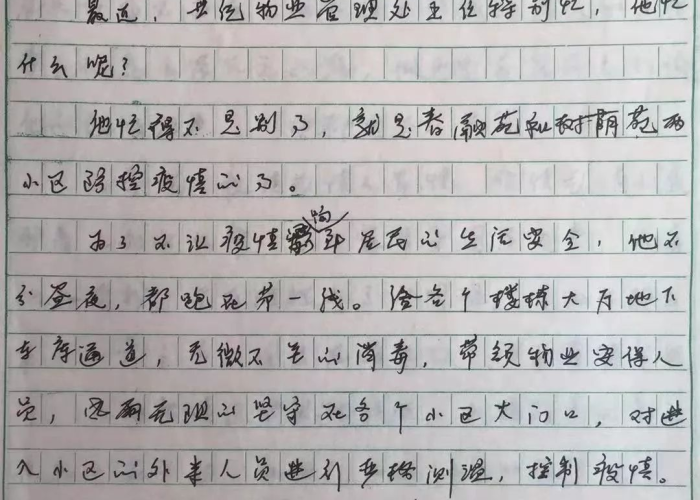 最近，某位物业管理处主任特别忙，他忙
什么呢？
他忙得不是别的，就是春融苑和树荫苑两
小区防控疫情的事。
为了不让疫情影响到居民的生活安全，他不
分昼夜，都跑在第一线。给各个楼栋大厅地下
车库通道，无微不至的消毒，带领物业安保人
员，风雨无阻的坚守在各个小区大门口，对进
入小区的外来人员进行严格测温，控制疫情。